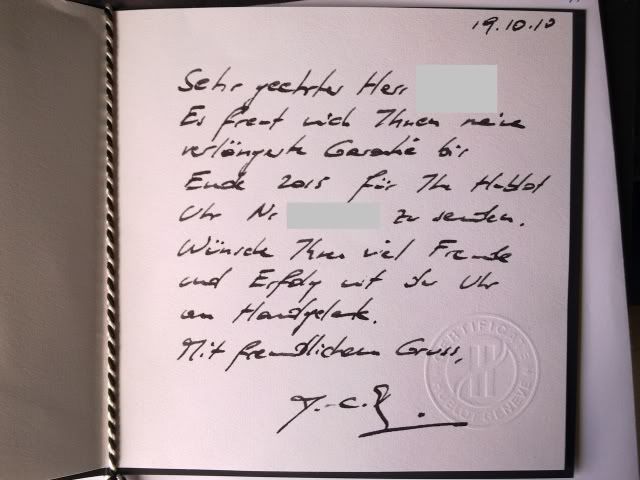 19.10.10
Sehr geehrter Herr
Es freut mich Ihnen meine
verlängerte Garantie bis
Ende 2015 für Ihr Hublot
Uhr Nr zu senden.
Wünsche Ihnen viel Freude
und Erfolg mit der Uhr
am Handgelenk.
Mit freundlichem Gruss,
J.-C. B.
CERTIFICATE
HUBLOT GENEVE